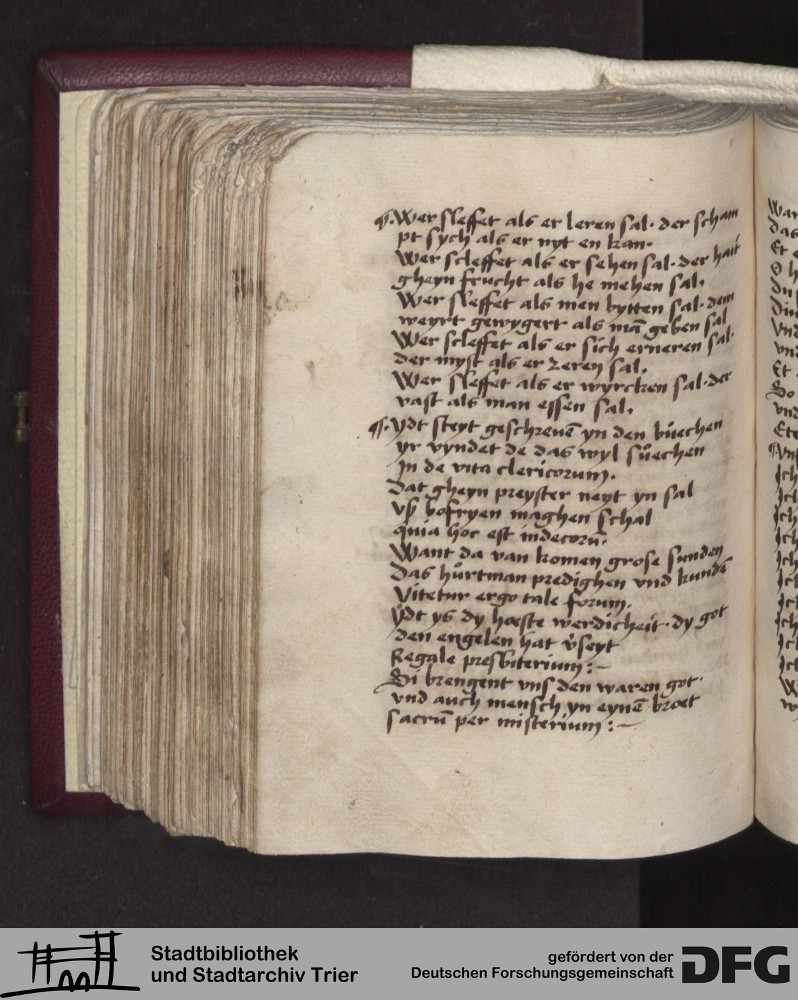 ¶. Wer sleffet als er leren sal · der scham
pt sych als er nyt en kan.
Wer scleffet als er sehen sal · der hait
gheyn frucht als he mehen sal.
Wer sleffet als men bytten sal · dem
weyrt gewygert als mā geben sal
Wer scleffet als er sich erneren sal ·
der myst als er zeren sal.
Wer sleffet als er wyrcken sal · der
vast als man essen sal.
¶. Ydt steyt geschreuē yn den bůechen
yr vyndet de das wyl sůechen
In de vita clericorum.
Dat gheyn preyster neyt yn sal
vß bofryen maghen schal
quia hoc est indecorū.
Want da van komen grose sunden
Das hůrtman predighen vnd kundē
Vitetur ergo tale forum.
Ydt ys dy hoeste werdicheit · dy got
den engelen hat v̓seyt
Regale presbiterium :~
Si brengent vns den waren got ·
vnd auch mensch yn eynē broet
sacrū per misterium :~
War
das
Et
O h
Du
Vnd
vnd
Et
So
vnd
Ich
Ich
Ich
Ich
Ich
Ich
Ich
Ich
Ich
Stadtbibliothek
und Stadtarchiv Trier
gefördert von der
Deutschen Forschungsgemeinschaft
DFG